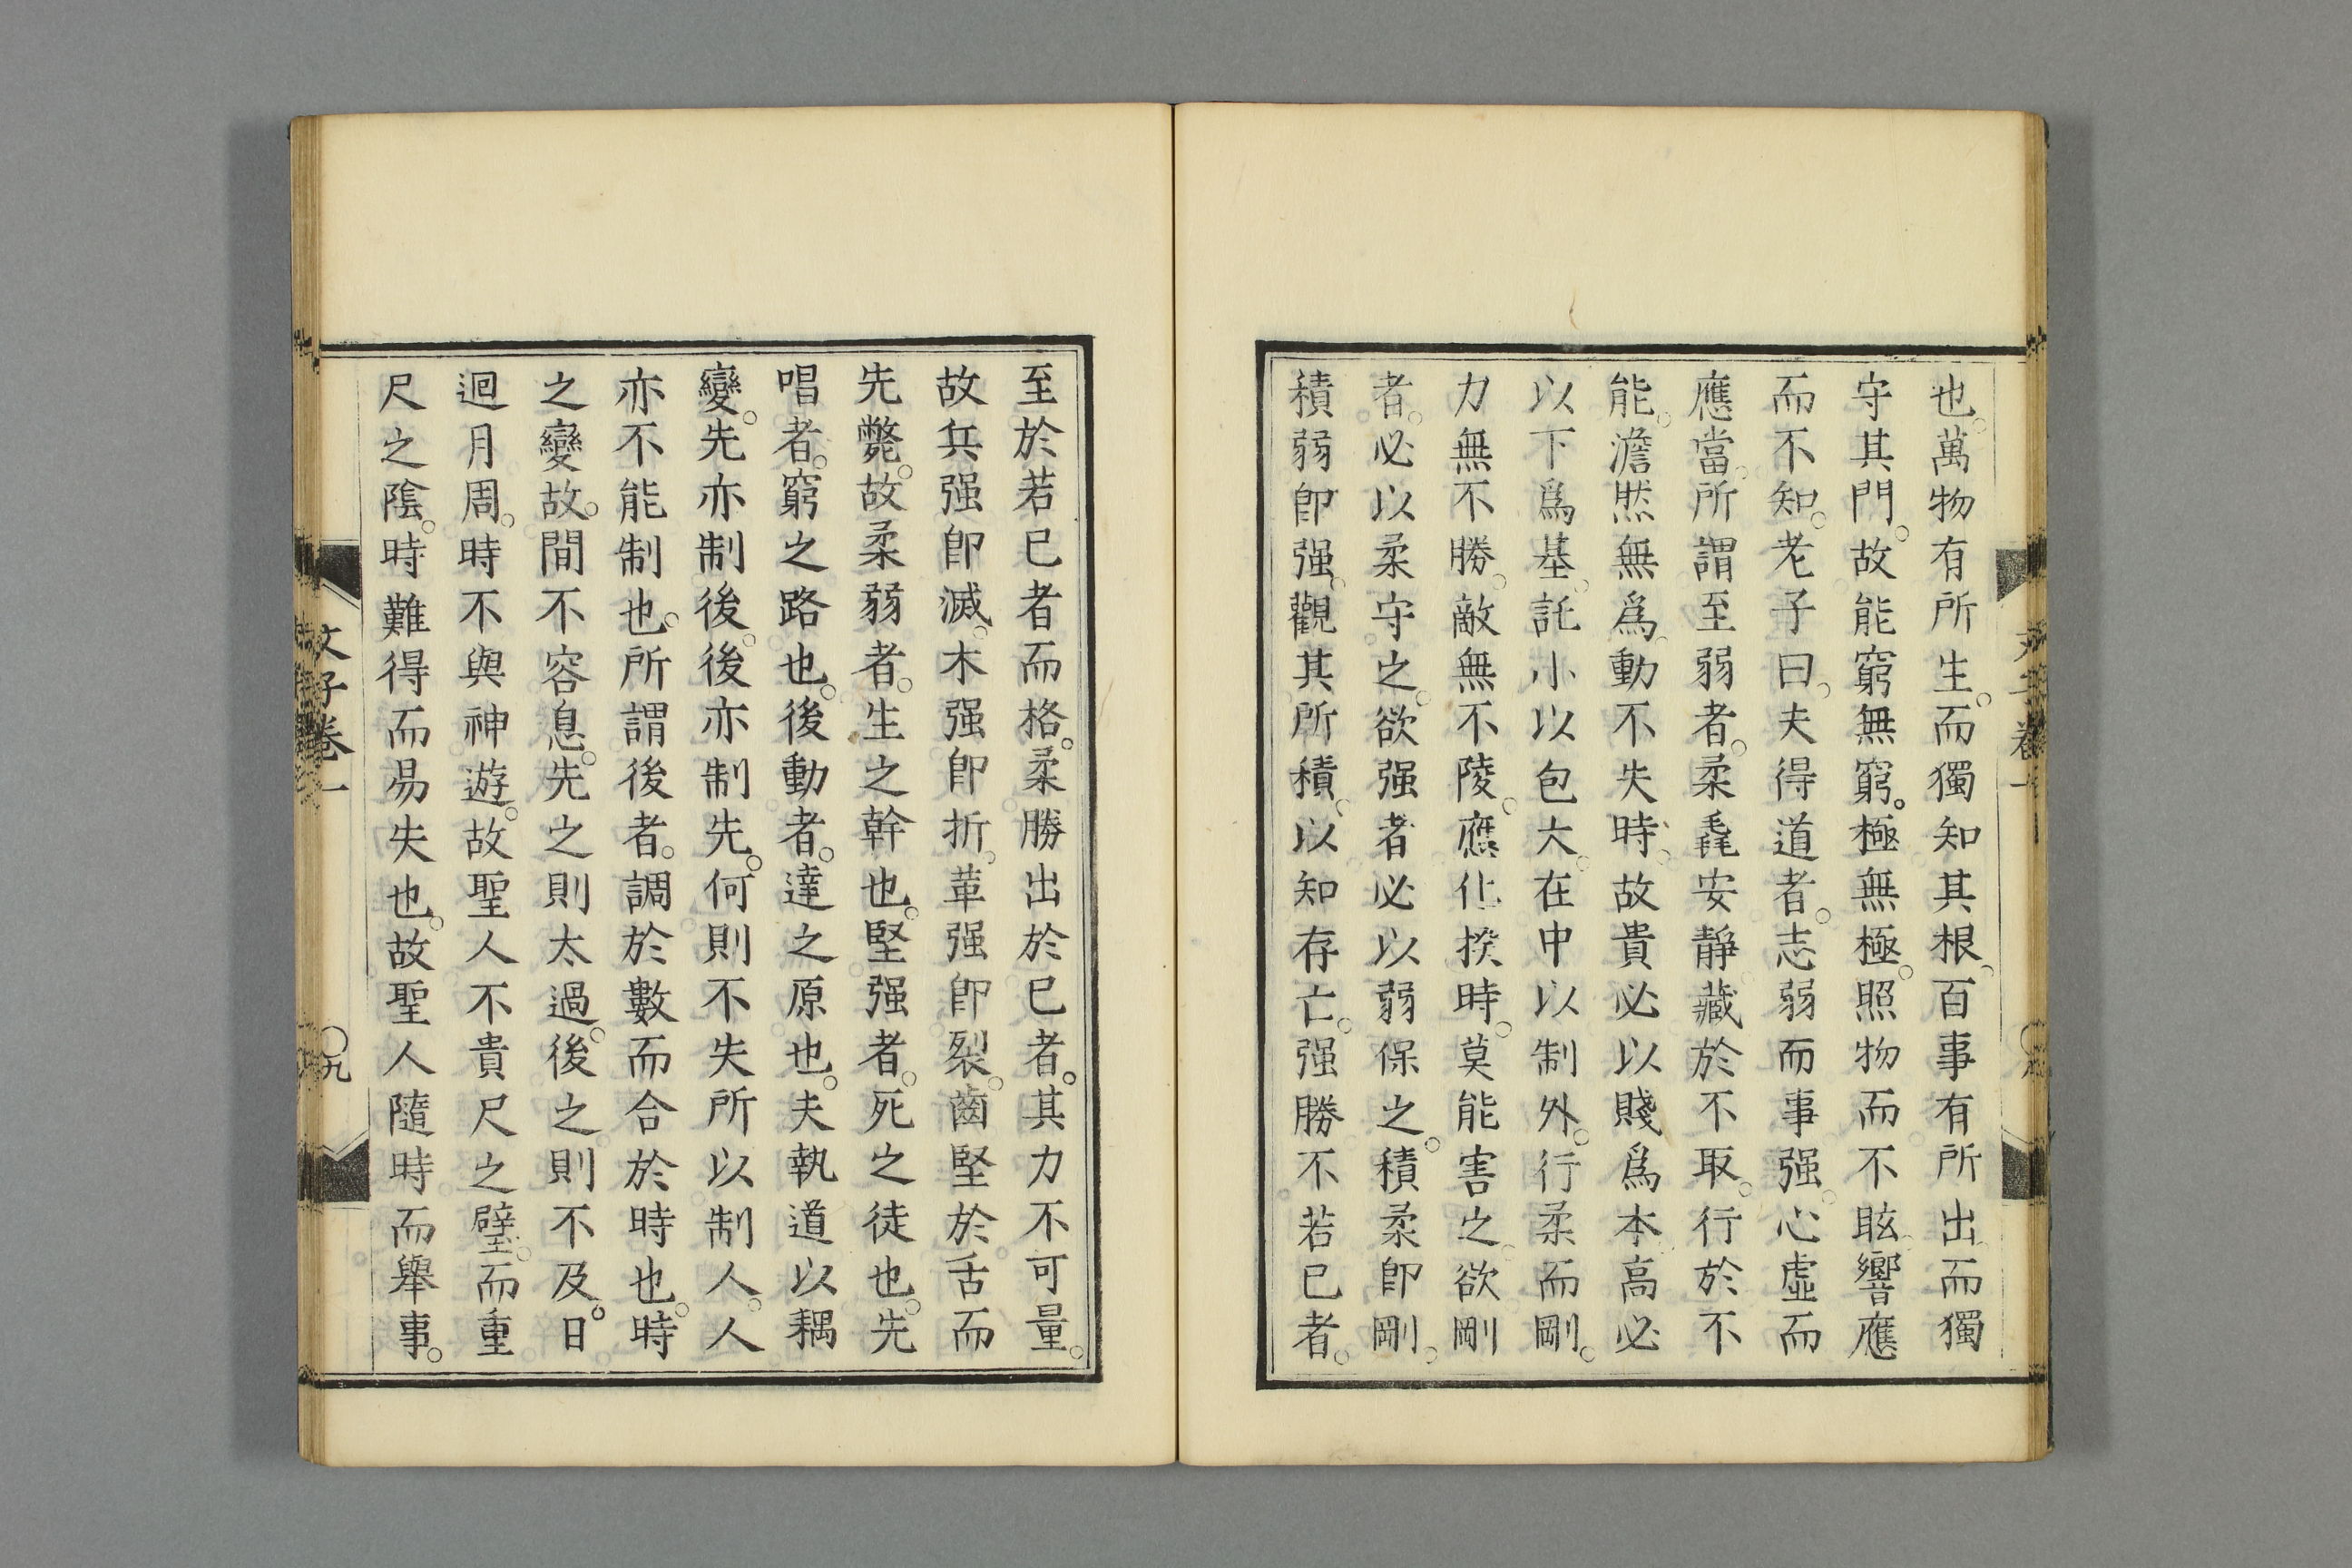 也。萬物有所生。而獨知其根。百事有所出。而獨
守其門。故能窮無窮。極無極。照物而不眩。響應
而不知。老子曰。夫得道者。志弱而事强。心虛而
應當。所謂至弱者。柔毳安靜。藏於不取。行於不
能。澹然無爲。動不失時。故貴必以賤爲本。高必
以下爲基。託小以包大。在中以制外。行柔而剛。
力無不勝。敵無不陵。應化揆時。莫能害之。欲剛
者。必以柔守之。欲强者必以弱保之。積柔卽剛。
積弱卽强。觀其所積。以知存亡。强勝不若已者。
至於若已者而格。柔勝出於已者。其力不可量。
故兵强卽滅。木强卽折。革强卽裂。齒堅於舌而
先斃。故柔弱者。生之幹也。堅强者。死之徒也。先
唱者。窮之路也。後動者。達之原也。夫執道以耦
變。先亦制後。後亦制先。何則不失所以制人。人
亦不能制也。所謂後者。調於數而合於時也。時
之變故。間不容息。先之則太過。後之則不及。日
迴月周。時不與神遊。故聖人不貴尺之璧。而重
尺之陰。時難得而易失也。故聖人隨時而舉事。
文子卷一
〇九